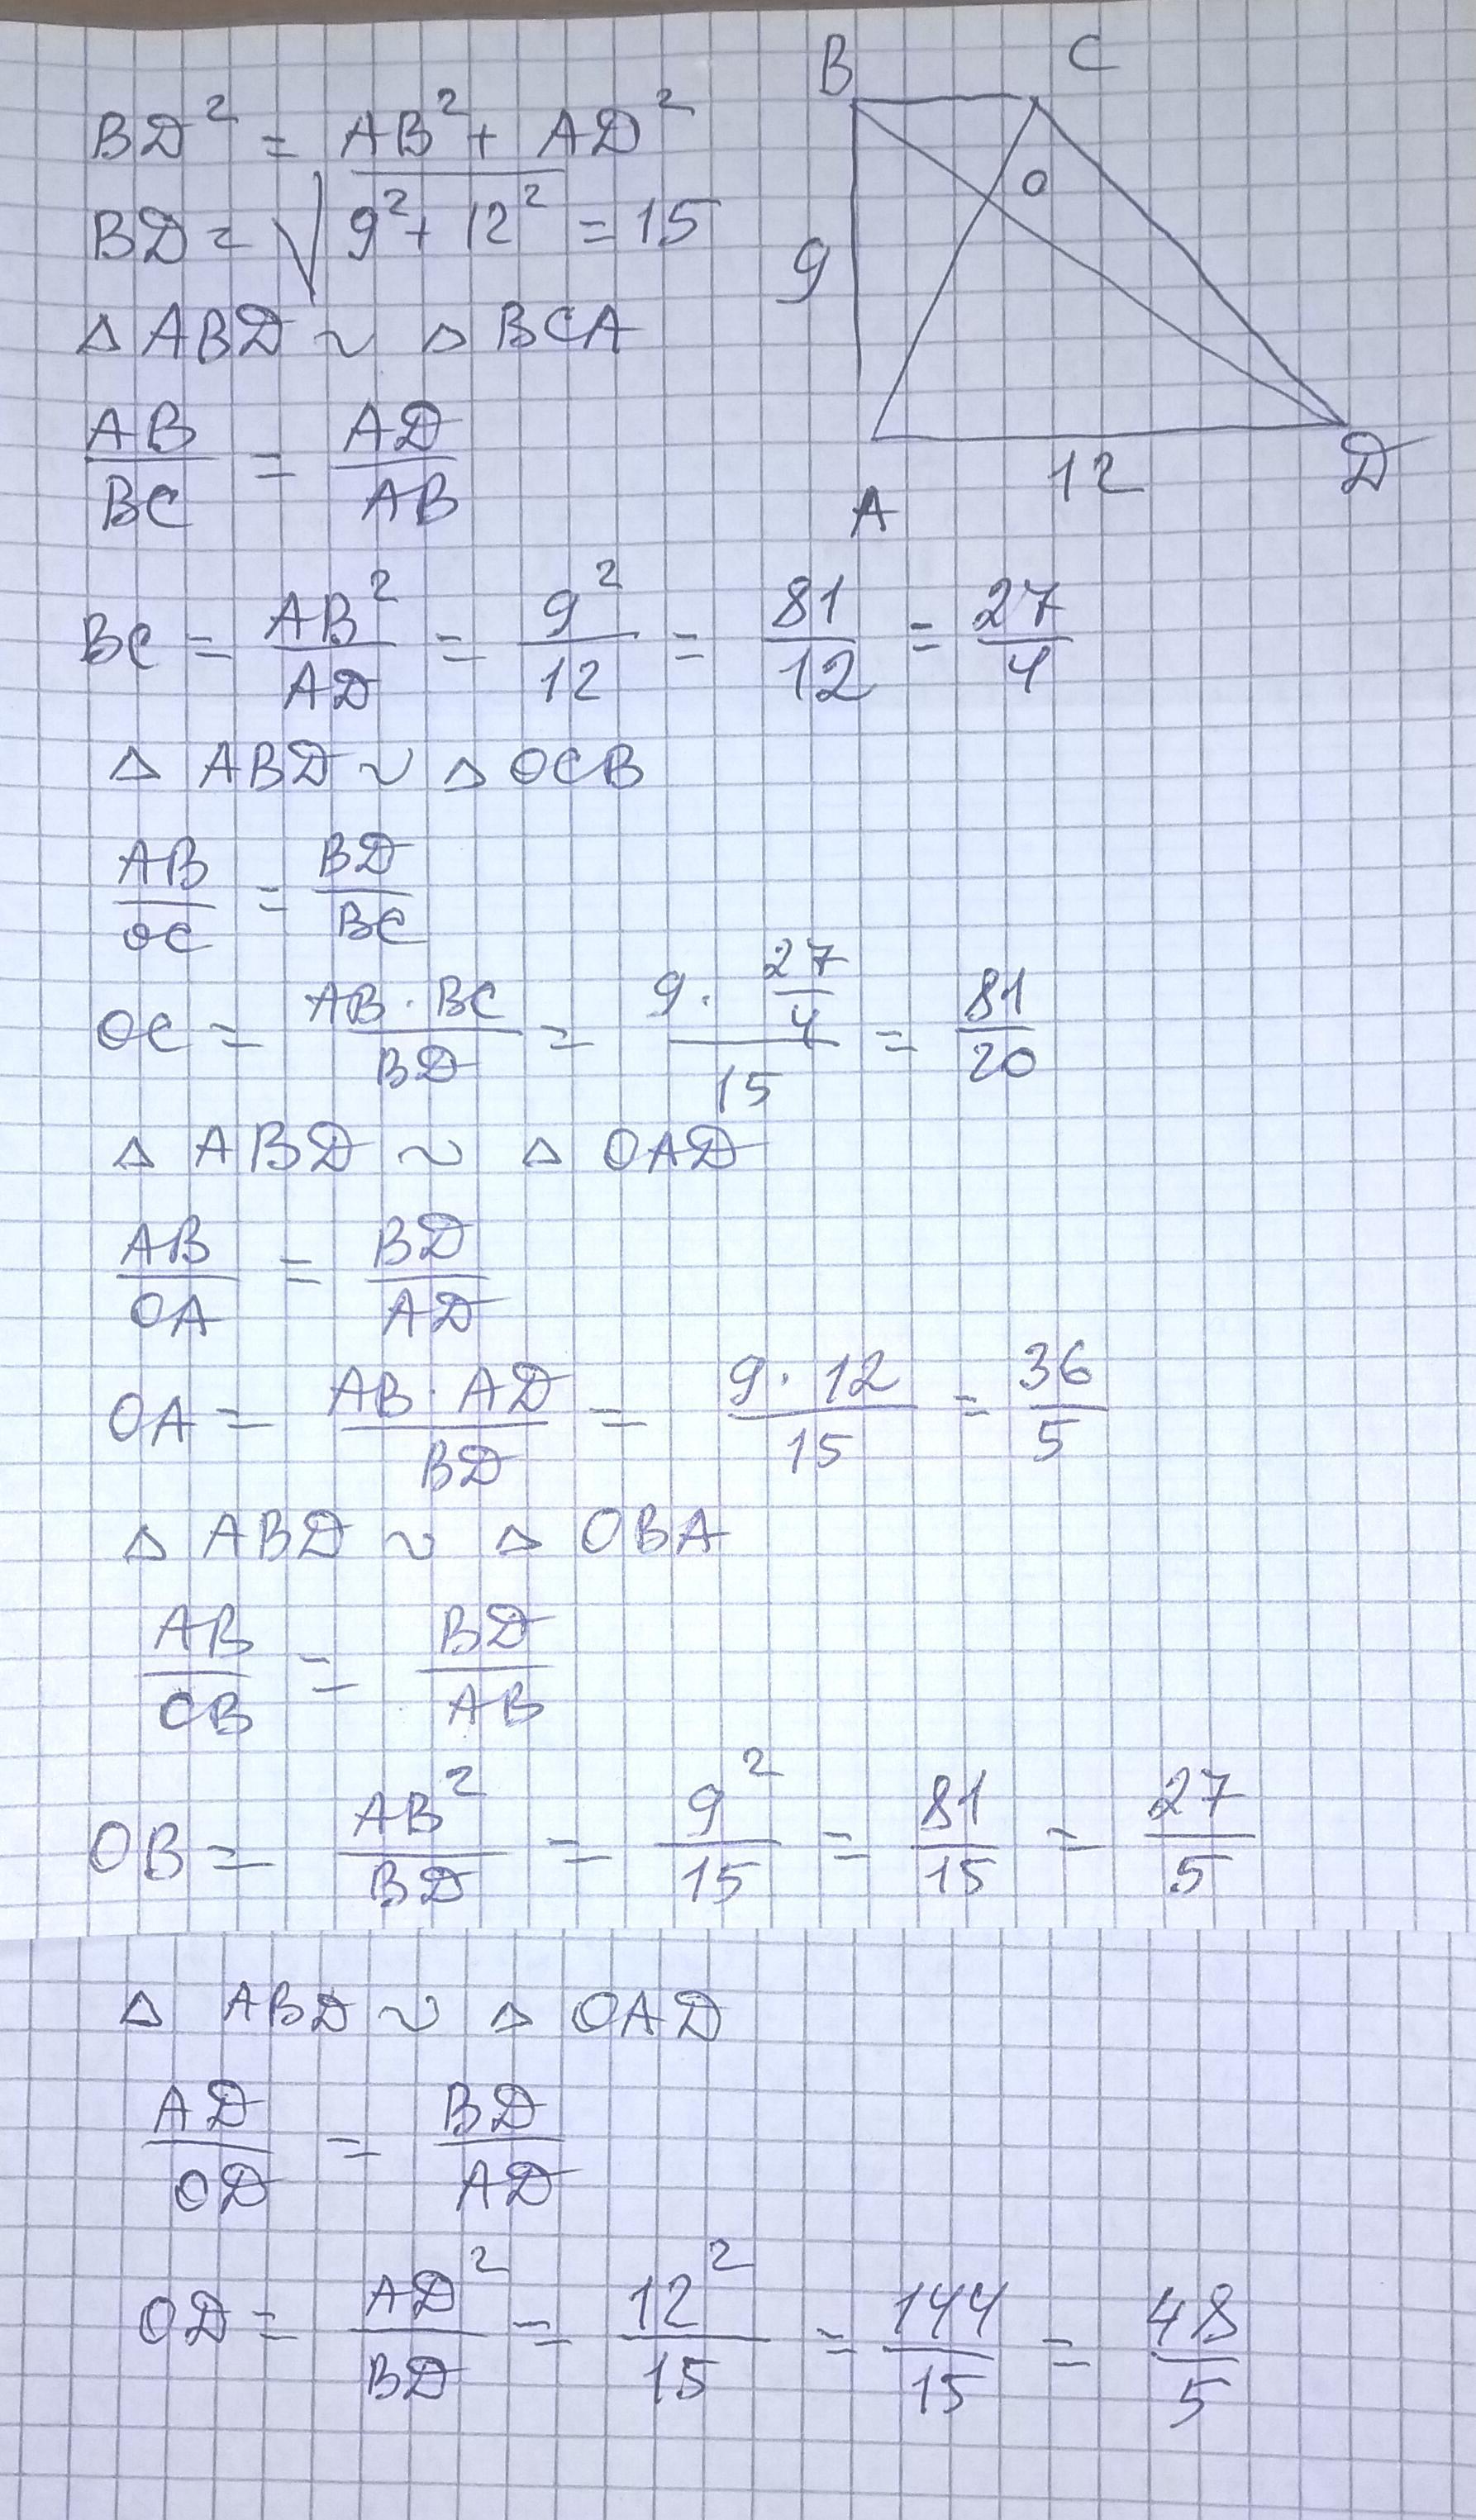 BD² = AB² + AD²
BD = √9² + 12² = 15
△ ABD ~ △ BCA
AB/BC = AD/AB
BC = AB²/AD = 9²/12 = 81/12 = 27/4
△ ABD ~ △ OCB
AB/OC = BD/BC
OC = AB · BC/BD = 9 · 27/4/15 = 81/20
△ ABD ~ △ OAD
AB/OA = BD/AD
OA = AB · AD/BD = 9 · 12/15 = 36/5
△ ABD ~ △ OBA
AB/OB = BD/AB
OB = AB²/BD = 9²/15 = 81/15 = 27/5
△ ABD ~ △ OAD
AD/OD = BD/AD
OD = AD²/BD = 12²/15 = 144/15 = 48/5
B
C
O
9
12
A
D